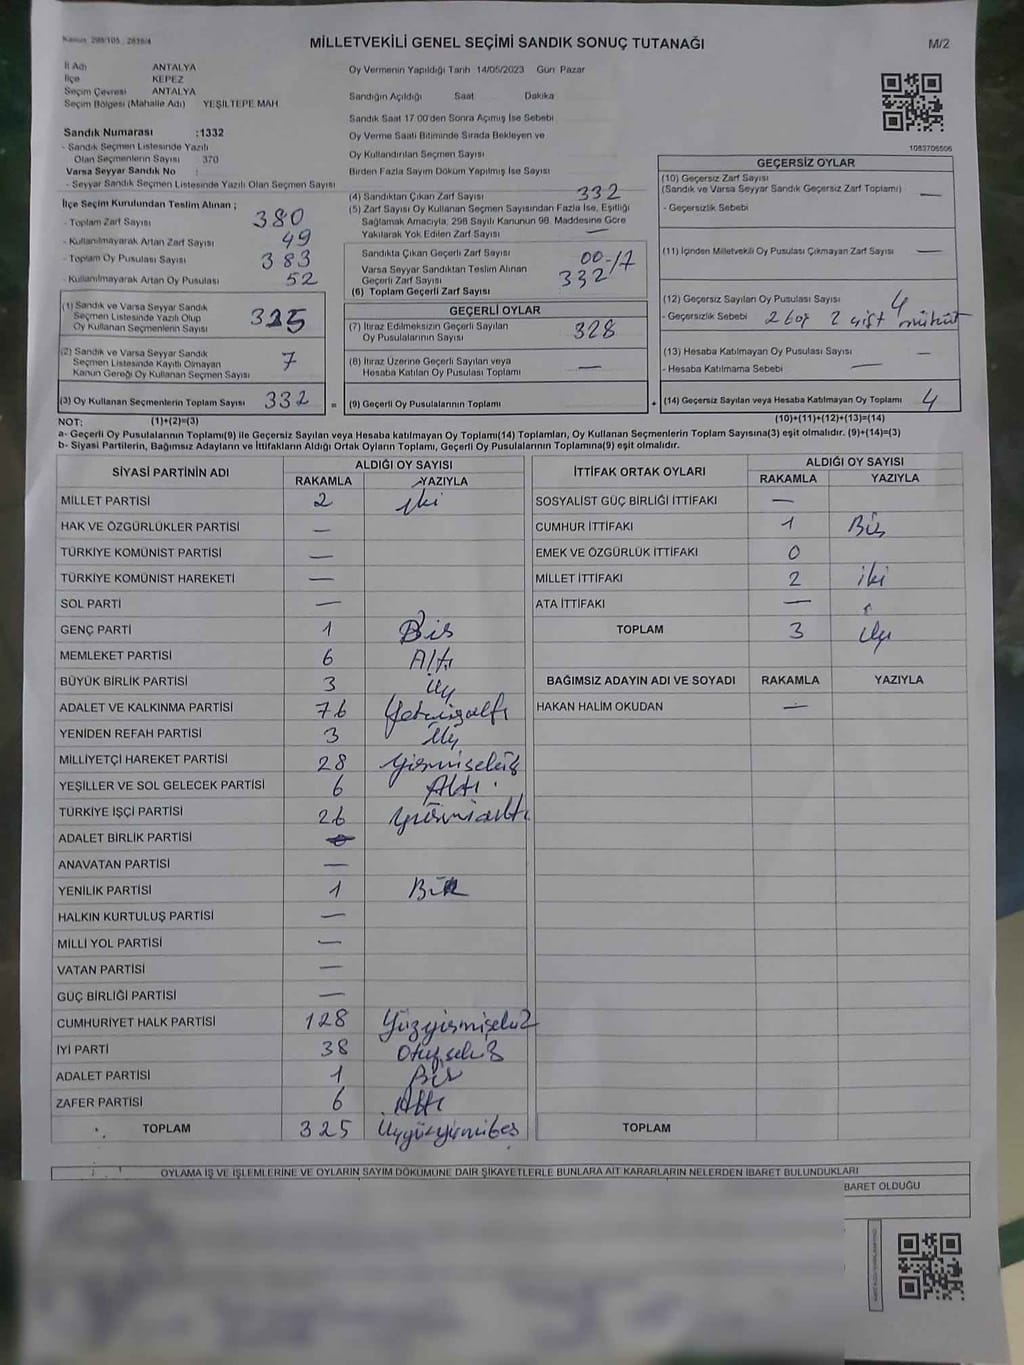 Kanun 298/105 ; 2839/4
MİLLETVEKİLİ GENEL SEÇİMİ SANDIK SONUÇ TUTANAĞI
M/2
İl Adı ANTALYA
İlçe KEPEZ
Seçim Çevresi ANTALYA
Seçim Bölgesi (Mahalle Adı) YEŞİLTEPE MAH
Sandık Numarası :1332
- Sandık Seçmen Listesinde Yazılı
Olan Seçmenlerin Sayısı 370
Varsa Seyyar Sandık No :
- Seyyar Sandık Seçmen Listesinde Yazılı Olan Seçmen Sayısı
Oy Vermenin Yapıldığı Tarih 14/05/2023 Gün Pazar
Sandığın Açıldığı Saat Dakika
Sandık Saat 17:00'den Sonra Açımış İse Sebebi
Oy Verme Saati Bitiminde Sırada Bekleyen ve
Oy Kullandırılan Seçmen Sayısı
Birden Fazla Sayım Döküm Yapılmış İse Sayısı
1083706506
İlçe Seçim Kurulundan Teslim Alınan ;
- Toplam Zarf Sayısı 380
- Kullanılmayarak Artan Zarf Sayısı 49
- Toplam Oy Pusulası Sayısı 383
- Kullanılmayarak Artan Oy Pusulası 52
(1) Sandık ve Varsa Seyyar Sandık
Seçmen Listesinde Yazılı Olup
Oy Kullanan Seçmenlerin Sayısı 325
(2) Sandık ve Varsa Seyyar Sandık
Seçmen Listesinde Kayıtlı Olmayan
Kanun Gereği Oy Kullanan Seçmen Sayısı 7
(3) Oy Kullanan Seçmenlerin Toplam Sayısı 332 =
(4) Sandıktan Çıkan Zarf Sayısı 332
(5) Zarf Sayısı Oy Kullanan Seçmen Sayısından Fazla İse, Eşitliği
Sağlamak Amacıyla, 298 Sayılı Kanunun 98. Maddesine Göre
Yakılarak Yok Edilen Zarf Sayısı —
Sandıkta Çıkan Geçerli Zarf Sayısı
Varsa Seyyar Sandıktan Teslim Alınan
Geçerli Zarf Sayısı 332
(6) Toplam Geçerli Zarf Sayısı
GEÇERLİ OYLAR
(7) İtiraz Edilmeksizin Geçerli Sayılan
Oy Pusulalarının Sayısı 328
(8) İtiraz Üzerine Geçerli Sayılan veya
Hesaba Katılan Oy Pusulası Toplamı —
(9) Geçerli Oy Pusulalarının Toplamı +
GEÇERSİZ OYLAR
(10) Geçersiz Zarf Sayısı
(Sandık ve Varsa Seyyar Sandık Geçersiz Zarf Toplamı) —
- Geçersizlik Sebebi
(11) İçinden Milletvekili Oy Pusulası Çıkmayan Zarf Sayısı —
(12) Geçersiz Sayılan Oy Pusulası Sayısı 4
- Geçersizlik Sebebi 2 boş 2 çift mühür
(13) Hesaba Katılmayan Oy Pusulası Sayısı —
- Hesaba Katılmama Sebebi —
(14) Geçersiz Sayılan veya Hesaba Katılmayan Oy Toplamı 4
NOT: (1)+(2)=(3) (10)+(11)+(12)+(13)=(14)
a- Geçerli Oy Pusulalarının Toplamı(9) ile Geçersiz Sayılan veya Hesaba katılmayan Oy Toplamı(14) Toplamları, Oy Kullanan Seçmenlerin Toplam Sayısına(3) eşit olmalıdır. (9)+(14)=(3)
b- Siyasi Partilerin, Bağımsız Adayların ve İttifakların Aldığı Ortak Oyların Toplamı, Geçerli Oy Pusulalarının Toplamına(9) eşit olmalıdır.
SİYASİ PARTİNİN ADI ALDIĞI OY SAYISI
RAKAMLA YAZIYLA
MİLLET PARTİSİ 2 iki
HAK VE ÖZGÜRLÜKLER PARTİSİ —
TÜRKİYE KOMÜNİST PARTİSİ —
TÜRKİYE KOMÜNİST HAREKETİ —
SOL PARTİ —
GENÇ PARTİ 1 Bir
MEMLEKET PARTİSİ 6 Altı
BÜYÜK BİRLİK PARTİSİ 3 üç
ADALET VE KALKINMA PARTİSİ 76 Yetmişaltı
YENİDEN REFAH PARTİSİ 3 Üç
MİLLİYETÇİ HAREKET PARTİSİ 28 Yirmisekiz
YEŞİLLER VE SOL GELECEK PARTİSİ 6 Altı
TÜRKİYE İŞÇİ PARTİSİ 26 Yirmialtı
ADALET BİRLİK PARTİSİ
ANAVATAN PARTİSİ —
YENİLİK PARTİSİ 1 Bir
HALKIN KURTULUŞ PARTİSİ —
MİLLİ YOL PARTİSİ —
VATAN PARTİSİ —
GÜÇ BİRLİĞİ PARTİSİ —
CUMHURİYET HALK PARTİSİ 128 Yüzyirmisekiz
İYİ PARTİ 38 Otuzsekiz
ADALET PARTİSİ 1 Bir
ZAFER PARTİSİ 6 Altı
TOPLAM 325 Üçyüzyirmibeş
İTTİFAK ORTAK OYLARI ALDIĞI OY SAYISI
RAKAMLA YAZIYLA
SOSYALİST GÜÇ BİRLİĞİ İTTİFAKI —
CUMHUR İTTİFAKI 1 Bir
EMEK VE ÖZGÜRLÜK İTTİFAKI 0
MİLLET İTTİFAKI 2 iki
ATA İTTİFAKI —
TOPLAM 3 üç
BAĞIMSIZ ADAYIN ADI VE SOYADI RAKAMLA YAZIYLA
HAKAN HALİM OKUDAN —
TOPLAM
OYLAMA İŞ VE İŞLEMLERİNE VE OYLARIN SAYIM DÖKÜMÜNE DAİR ŞİKAYETLERLE BUNLARA AİT KARARLARIN NELERDEN İBARET BULUNDUKLARI
BARET OLDUĞU